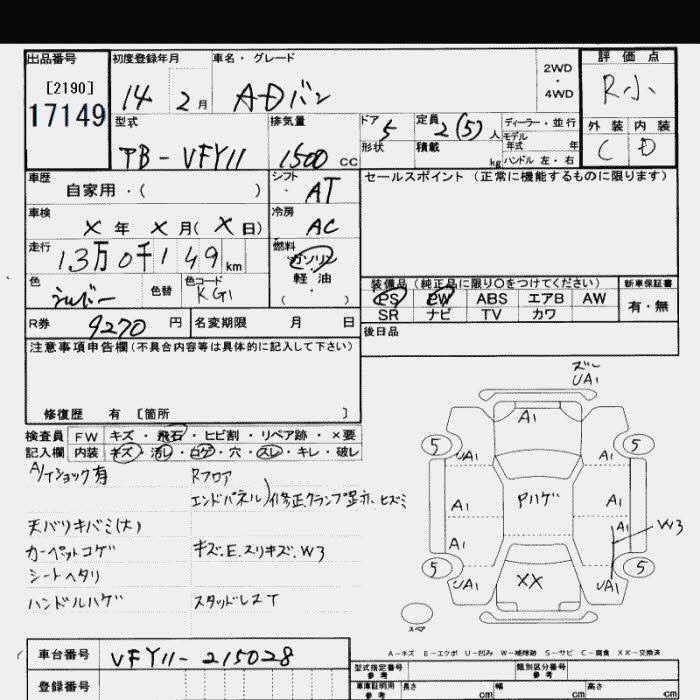 出品番号 初度登録年月 車名・グレード 評価点
[2190] 2WD
17149 14 2月 ADバン 4WD R小
型式 排気量 ドア 5 定員 2(5)人 ディーラー・並行 外装 内装
モデル年式 年
TB-VFY11 1500 CC 形状 積載 kg ハンドル 左・右 C D
車歴 シフト セールスポイント (正常に機能するものに限ります)
自家用・( ) AT
車検 冷房
X年 X月(X日) AC
走行 燃料
13万0千149km ガソリン
軽油
色 色替 色コード ( ) 装備品 (純正品に限り〇をつけてください) 新車保証書
シルバー KG1 PS PW ABS エアB AW 有・無
R券 9270円 名変期限 月 日 SR ナビ TV カワ
注意事項申告欄(不具合内容等は具体的に記入して下さい) 後日品
修復歴 有 [箇所 ]
検査員 FW キズ・飛石・ヒビ割・リペア跡・×要
記入欄 内装 キズ・汚レ・コゲ・穴・スレ・キレ・破レ
A/Tショック有 Rフロア
エンドパネル)修正、クランプ跡、ヒズミ
天バリキバミ(大)
カーペットコゲ キズ.E.スリキズ.W3
シートヘタリ
ハンドルハゲ スタッドレスT
UA1
A1
5 UA1 UA1 5
A1 Pハゲ A1
A1 A1 W3
5 UA1 XX UA1 5
スペア
A-キズ E-エクボ U-凹み W-補修跡 S-サビ C-腐食 XX-交換済
車台番号 VFY11-215028
型式指定番号 参考 類別区分番号 参考
登録番号 車庫証明用 参考 長さ cm 幅 cm 高さ cm